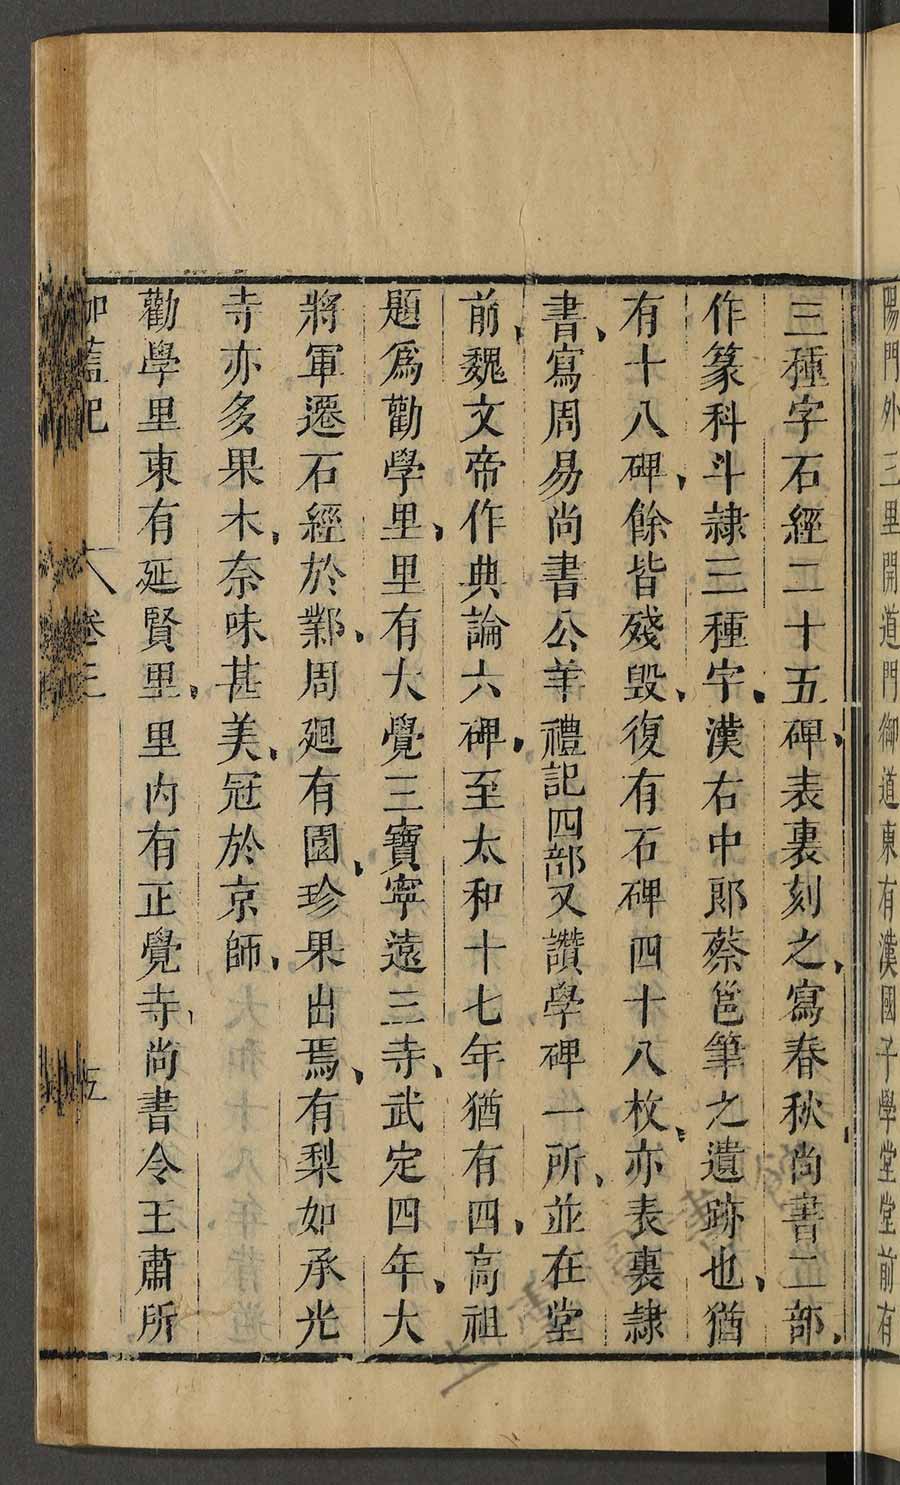 陽門外三里開道門御道東有漢國子學堂堂前有
三種字石經二十五碑表裏刻之寫春秋尚書二部
作篆科斗隷三種字漢右中郎蔡邕筆之遺跡也猶
有十八碑餘皆殘毀復有石碑四十八枚亦表裏隷
書寫周易尚書公羊禮記四部又讚學碑一所並在堂
前魏文帝作典論六碑至太和十七年猶有四高祖
題爲勸學里里有大覺三寶寧遠三寺武定四年大
將軍遷石經於鄴周廻有園珍果出焉有梨如承光
寺亦多果木奈味甚美冠於京師
勸學里東有延賢里里內有正覺寺尚書令王肅所
伽藍記 卷三 五